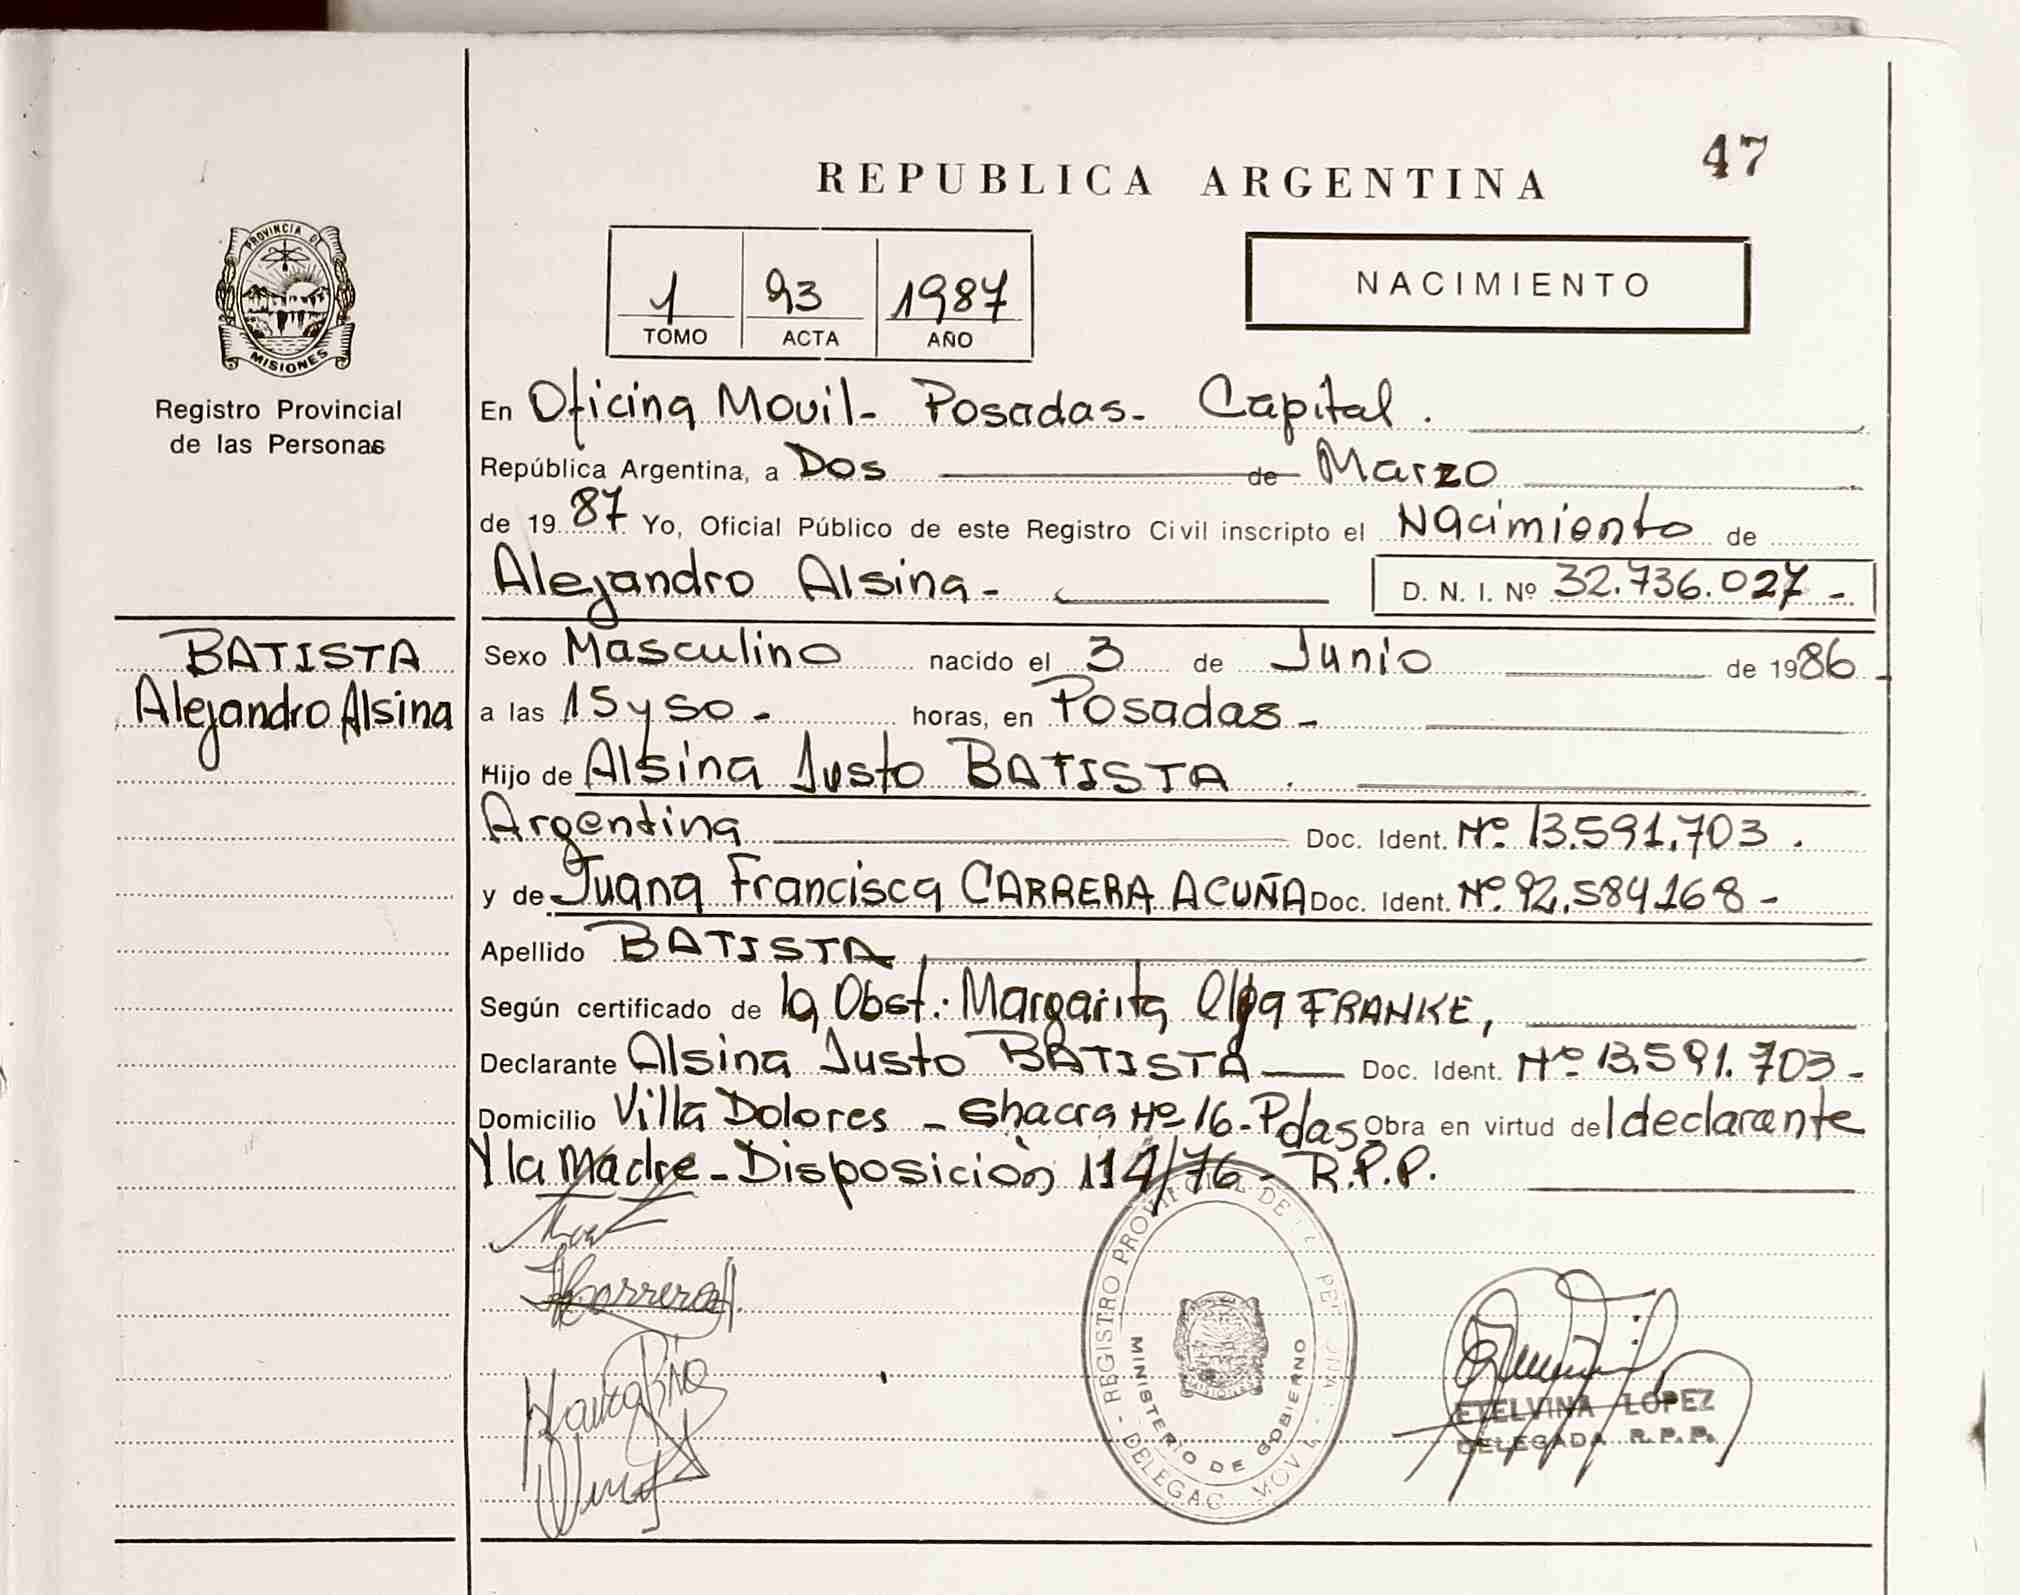 47
REPUBLICA ARGENTINA
PROVINCIA DE
MISIONES
Registro Provincial
de las Personas
1 93 1987
TOMO ACTA AÑO
NACIMIENTO
En Oficina Movil- Posadas- Capital.
República Argentina, a Dos de Marzo
de 1987 Yo, Oficial Público de este Registro Civil inscripto el Nacimiento de
Alejandro Alsina- D. N. I. Nº 32.736.027-
BATISTA
Alejandro Alsina
Sexo Masculino nacido el 3 de Junio de 1986-
a las 15 y 50- horas, en Posadas-
Hijo de Alsina Justo BATISTA.
Argentina Doc. Ident. Nº 13.591.703.
y de Juana Francisca CARRERA ACUÑA Doc. Ident. Nº 92.584168-
Apellido BATISTA
Según certificado de la Obst. Margarita Olga FRANKE,
Declarante Alsina Justo BATISTA Doc. Ident. Nº 13.591.703-
Domicilio Villa Dolores - Chacra Nº 16-Pdas. Obra en virtud del declarante
Y la Madre-Disposición 114/76- R.P.P.
REGISTRO PROVINCIAL DE
MINISTERIO DE GOBIERNO
ETELVINA LOPEZ
DELEGADA R.P.P.